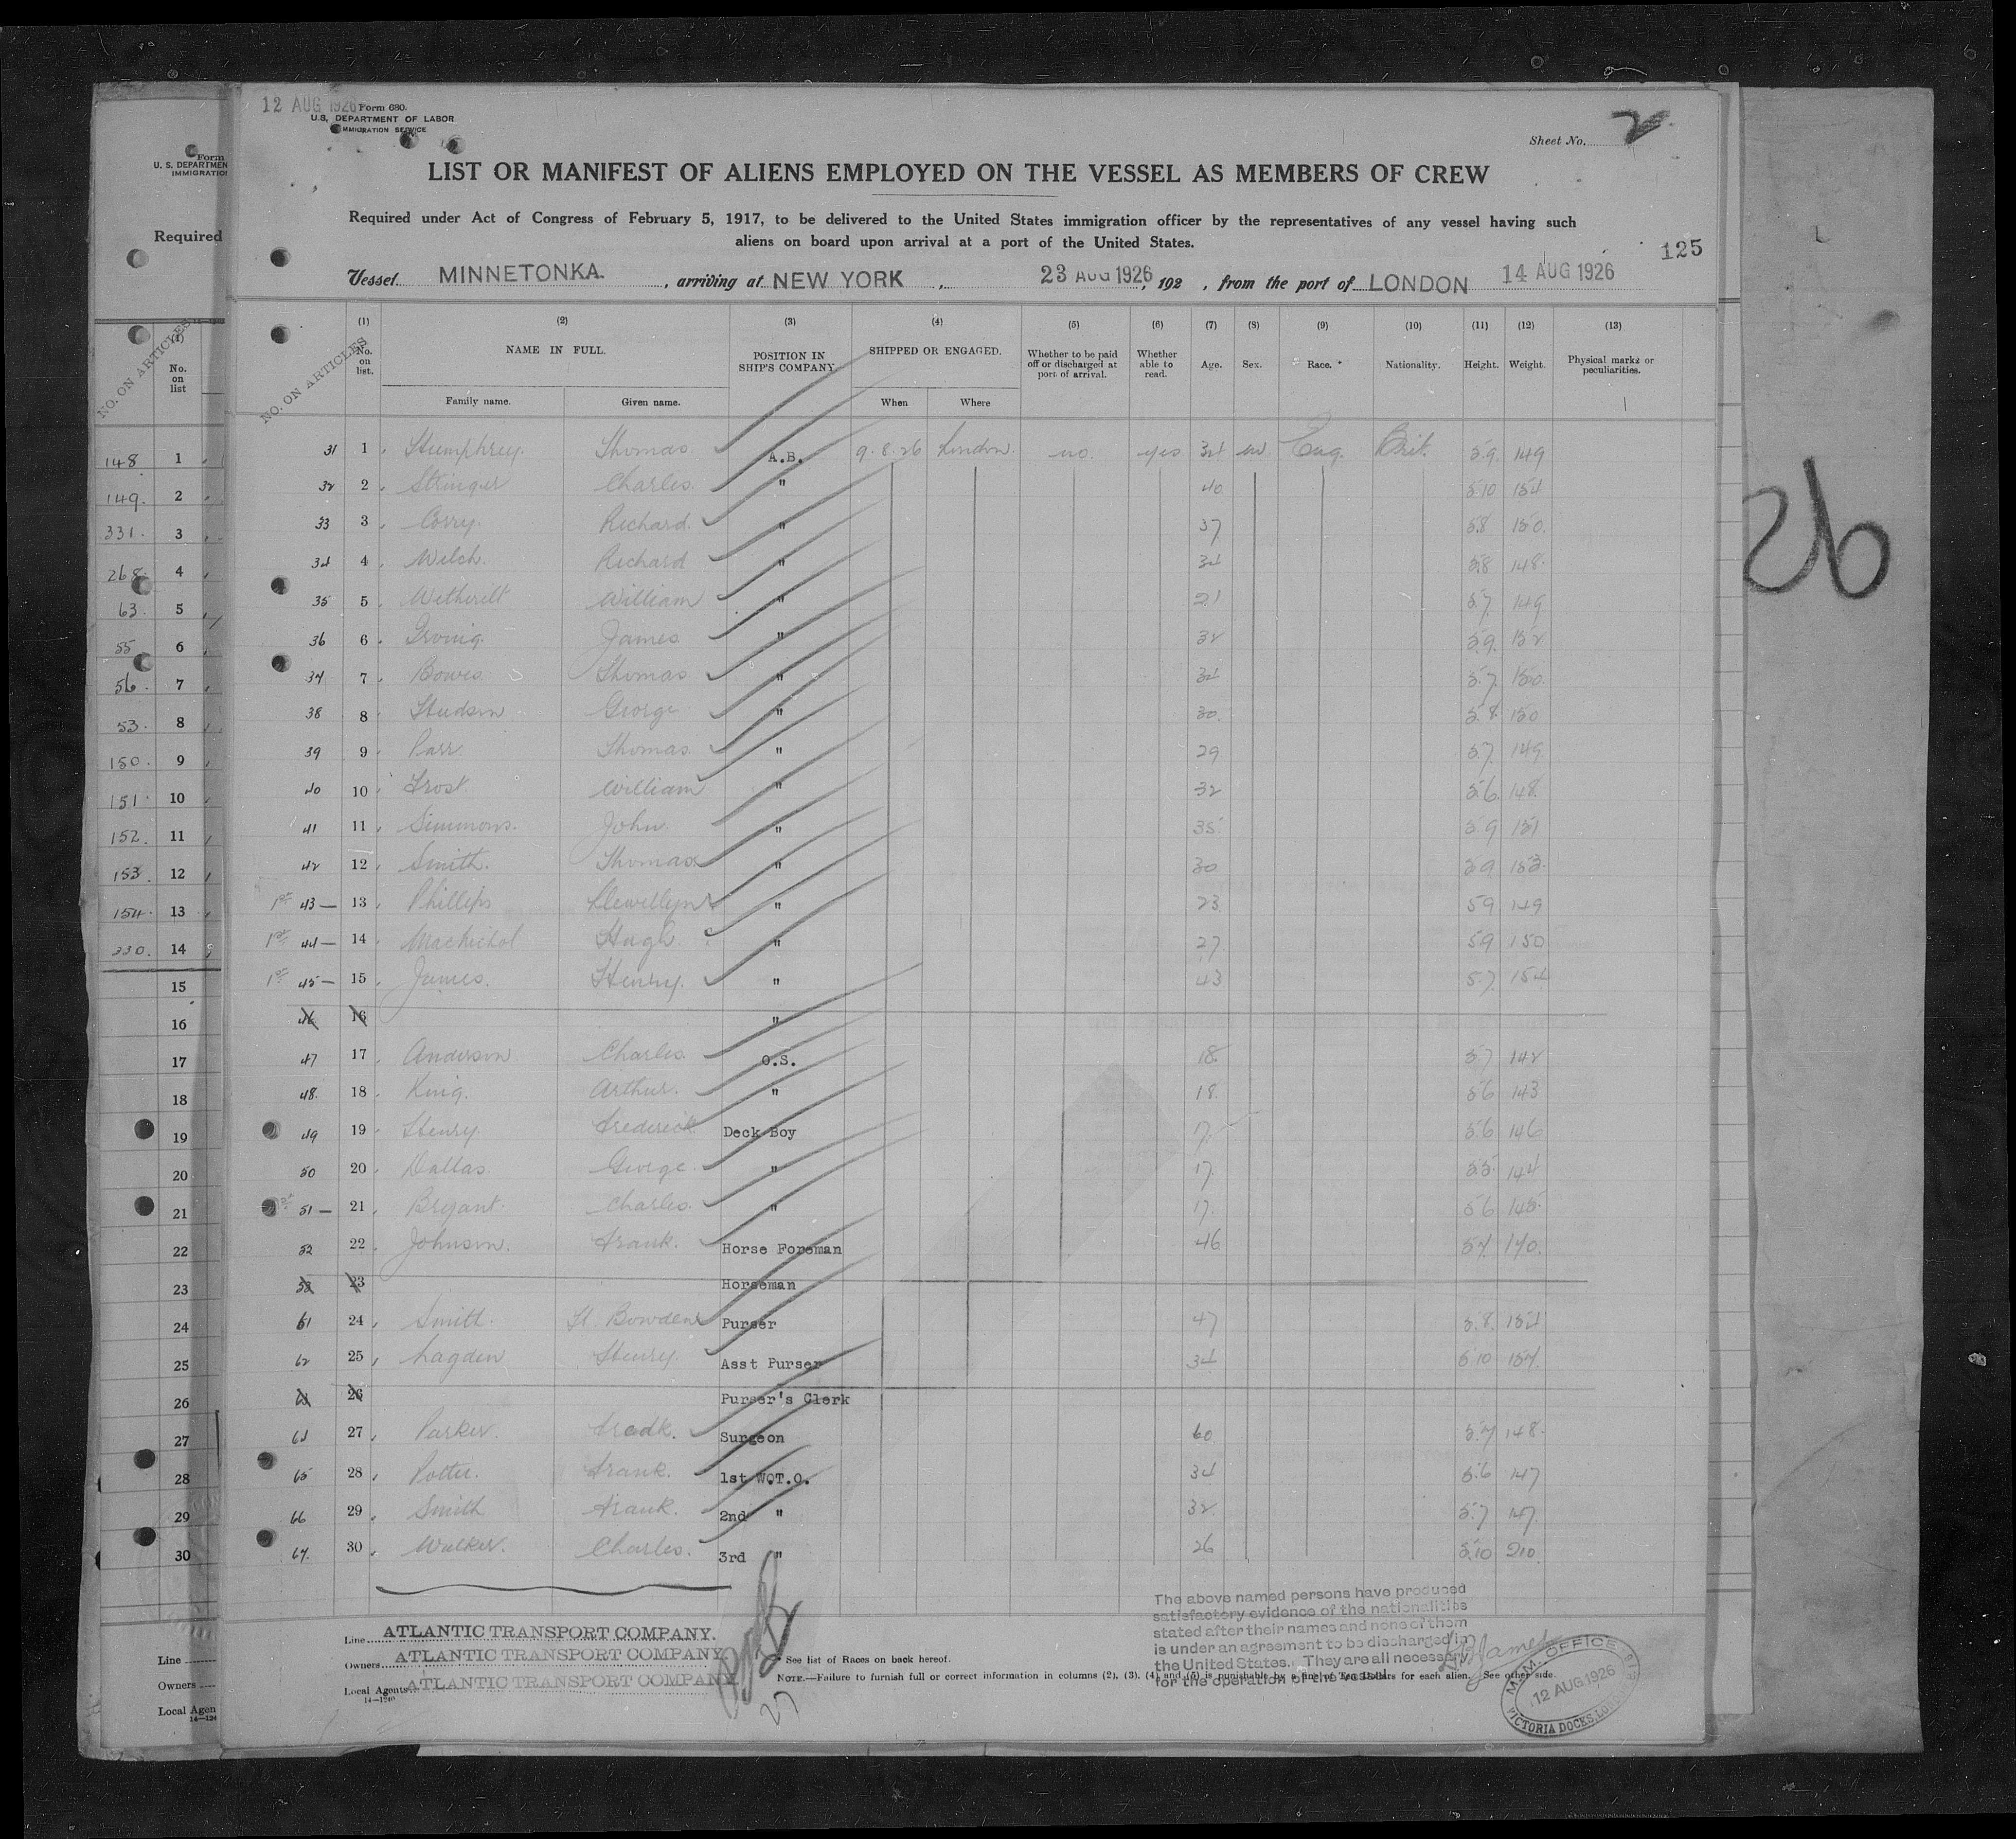 12 AUG 1926 Form 680.
U.S. DEPARTMENT OF LABOR
IMMIGRATION SERVICE
Sheet No. 2
LIST OR MANIFEST OF ALIENS EMPLOYED ON THE VESSEL AS MEMBERS OF CREW
Required under Act of Congress of February 5, 1917, to be delivered to the United States immigration officer by the representatives of any vessel having such
aliens on board upon arrival at a port of the United States.
125
Vessel MINNETONKA, arriving at NEW YORK, 23 AUG 1926, 192 , from the port of LONDON 14 AUG 1926
NO. ON ARTICLES
(1) (2) (3) (4) (5) (6) (7) (8) (9) (10) (11) (12) (13)
No. on list. NAME IN FULL. POSITION IN SHIP'S COMPANY SHIPPED OR ENGAGED. Whether to be paid off or discharged at port of arrival. Whether able to read. Age. Sex. Race.* Nationality. Height. Weight. Physical marks or peculiarities.
Family name. Given name. When Where
31 1 Humphrey Thomas A.B. 9.8.26 London no. yes 34 m Eng. Brit. 5.9 149
32 2 Stringer Charles " 40 5.10 154
33 3 Corry Richard " 37 5.8 150
34 4 Welch Richard " 34 5.8 148
35 5 Wetherilt William " 21 5.7 149
36 6 Irving James " 32 5.9 152
37 7 Bowes Thomas " 34 5.7 150
38 8 Hudson George " 30 5.8 150
39 9 Parr Thomas " 29 5.7 149
40 10 Frost William " 32 5.6 148
41 11 Simmons John " 35 5.9 151
42 12 Smith Thomas " 30 5.9 153
1st 43 — 13 Phillips Llewellyn " 23 5.9 149
1st 44 — 14 MacNichol Hugh " 27 5.9 150
1st 45 — 15 James Henry " 43 5.7 154
46 16 "
47 17 Anderson Charles O.S. 18 5.7 142
48 18 King Arthur " 18 5.6 143
49 19 Henry Frederick Deck Boy 17 5.6 146
50 20 Dallas George " 17 5.5 144
51 — 21 Bryant Charles " 17 5.6 145
52 22 Johnson Frank Horse Foreman 46 5.7 170
53 23 Horseman
61 24 Smith H. Bowden Purser 47 5.8 154
62 25 Lagden Henry Asst Purser 34 5.10 157
63 26 Purser's Clerk
64 27 Parker Fredk. Surgeon 60 5.7 148
65 28 Potter Frank 1st W.T.O. 34 5.6 147
66 29 Smith Frank 2nd " 32 5.7 147
67 30 Walker Charles 3rd " 26 5.10 210
Line ATLANTIC TRANSPORT COMPANY.
Owners ATLANTIC TRANSPORT COMPANY.
Local Agents ATLANTIC TRANSPORT COMPANY.
14—1240
27
* See list of Races on back hereof.
NOTE.—Failure to furnish full or correct information in columns (2), (3), (4) and (5) is punishable by a fine of Ten Dollars for each alien. See other side.
The above named persons have produced
satisfactory evidence of the nationalities
stated after their names and none of them
is under an agreement to be discharged in
the United States. They are all necessary
for the operation of the vessel.
M.M. OFFICE
12 AUG 1926
VICTORIA DOCKS,
Form
U. S. DEPARTMEN
IMMIGRATIO
Required
NO. ON ARTICLES
No. on list
148 1
149. 2
331. 3
268. 4
63. 5
55 6
56. 7
53. 8
150. 9
151. 10
152. 11
153. 12
154. 13
330. 14
15
16
17
18
19
20
21
22
23
24
25
26
27
28
29
30
Line
Owners
Local Agen
14—124
26